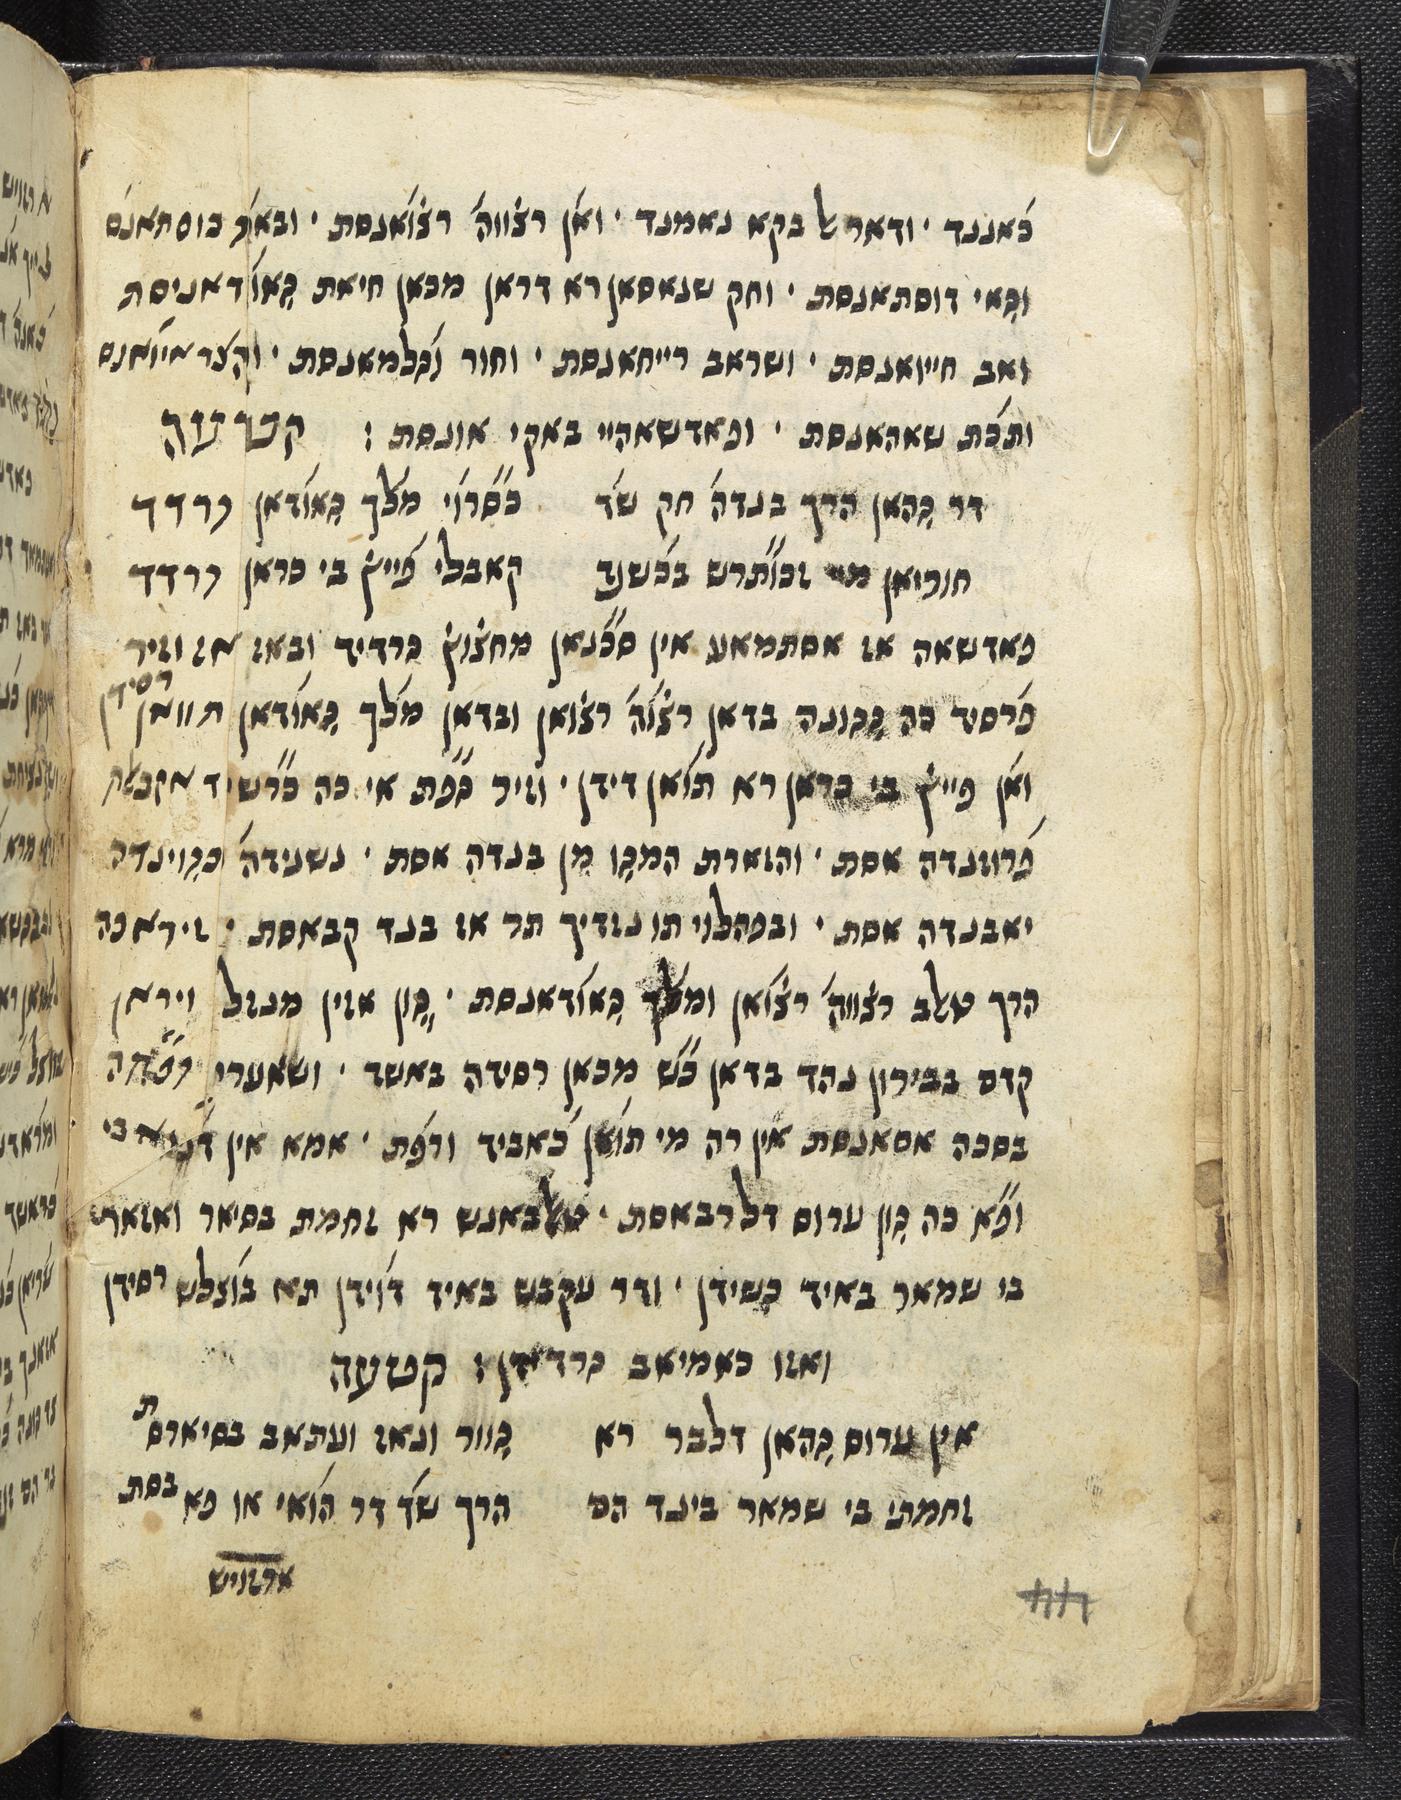 כ֗אננד ׳ ודאר ל בקא נאמנד ׳ ואן רצ֗ווה רצ֗ואנסת ׳ ובאג֗ בוסתאנס
וג֗אי דוסתאנסת ׳ וחק שנאסאן רא דראן מכאן חיאת ג֗אודאניסת
ואב חייואנסת ׳ ושראב רייחאנסת ׳ וחור וג֗למאנסת ׳
ותכ֗ת שאהאנסת ׳ ופאדשאהיי באקי אונסת : קטעה
דר ג֗האן הרך בנדה חק שד כ֗סרוי מלך ג֗אודאן גרדד
חוריאן מי זכותרש בכ֗שנד קאבלי פ֗ייץ֗ בי כראן גרדד
פאדשאה אז אסתמאע אין סכ֗נאן מחצ֗וץ֗ גרדיד ובאז אז וזיר
פרסיד כה ג֗גונה בדאן רצ֗וה רצ֗ואן ובדאן מלך ג֗אודאן תוואן רסידן
ואן פייץ֗ בי כראן רא תואן דידן ׳ וזיר גפ֗ת אי כה כ֗רשיד אקבלת
פ֗רוזנדה אסת ׳ והזארת המג֗ו מן בנדה אסת ׳ נשנידה כג֗וינדה
יאבנדה אסת ׳ ובפהלוי תו נזדיך תר אז בנד קבאסת ׳ זירא כה
הרך טלב רצ֗ווה רצ֗ואן ומלך ג֗אודאנסת ׳ ג֗ון אזין מנזל ויראן
קדם בבירון נהד בדאן כ֗ש מכאן רסידה באשד ׳ ושאערי גפ֗תה
בסכה אסאנסת אין רה מי תואן כ֗אביד ורפ֗ת ׳ אמא אין דניא בי
ופ֗א כה ג֗ון ערוס דלרבאסת ׳ טלבאנש רא זחמת בסיאר ואזאר
בי שמאר באיד כשידן ׳ ודר עקבש באיד דוידן תא בוצלש רסידן
ואזו כאמיאב גרדידן : קטעה
אין ערוס ג֗האן דלבר רא ג֗וור ונאז ועתאב בסיארסת
זחמתי בי שמאר בינד הם הרך שד דר הואי או פא בסת
ארזויש